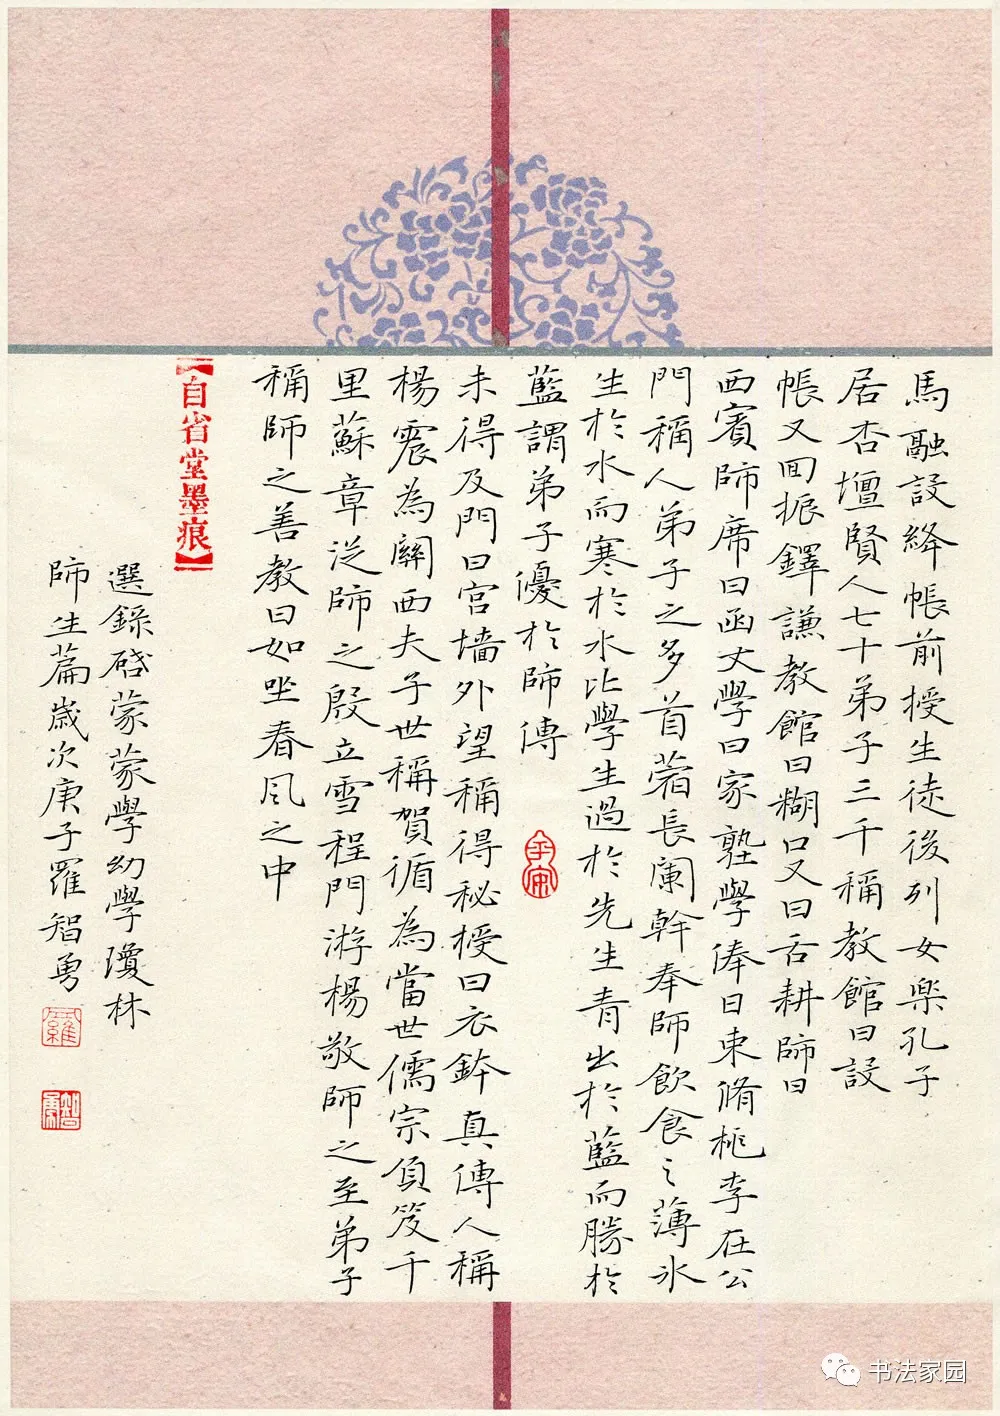 馬融設絳帳前授生徒後列女樂孔子
居杏壇賢人七十弟子三千稱教館曰設
帳又曰振鐸謙教館曰糊口又曰舌耕師曰
西賓師席曰函丈學曰家塾學俸曰束脩桃李在公
門稱人弟子之多首蓿長闌幹奉師飲食之薄冰
生於水而寒於水比學生過於先生青出於藍而勝於
藍謂弟子優於師傅
未得及門曰宮墻外望稱得秘授曰衣鉢真傳人稱
楊震為關西夫子世稱賀循為當世儒宗負笈千
里蘇章從師之殷立雪程門游楊敬師之至弟子
稱師之善教曰如坐春风之中
【自省堂墨痕】
選錄啓蒙蒙學幼學瓊林
師生篇歲次庚子羅智勇
羅
智勇
书法家园